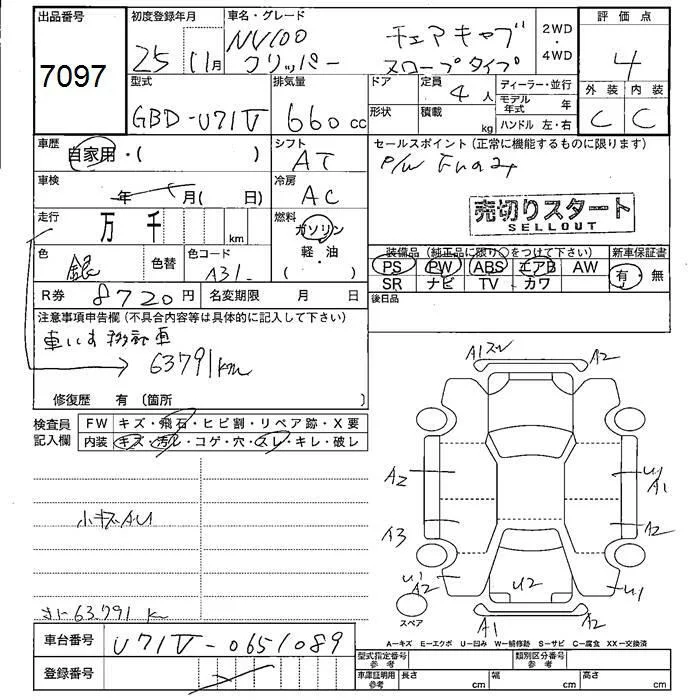 出品番号 7097
初度登録年月 25 11月
車名・グレード NV100 クリッパー チェアキャブ スロープタイプ
2WD・4WD
評価点 4
外装 C 内装 C
型式 GBD-U71V
排気量 660 cc
ドア 形状
定員 4人
積載 kg
ディーラー・並行
モデル年式 年
ハンドル 左・右
車歴 自家用・( )
シフト AT
セールスポイント(正常に機能するものに限ります)
P/W
車検 年 月( 日)
冷房 AC
売切りスタート
SELLOUT
走行 万 千 km
燃料 ガソリン 軽・油 ( )
色 銀 色替 色コード A31
装備品(純正品に限り○をつけて下さい) 新車保証書
PS PW ABS エアB AW 有・無
SR ナビ TV カワ
R券 8720円 名変期限 月 日
後日品
注意事項申告欄(不具合内容等は具体的に記入して下さい)
車いす移動車
63791km
修復歴 有(箇所 )
検査員記入欄
FW キズ・飛石・ヒビ割・リペア跡・X要
内装 キズ・汚レ・コゲ・穴・スレ・キレ・破レ
A1 A2
A2 U1 A1
A3 A2
U1 A2 U2 U1
スペア A1 A2
小キズAU
63.791 km
A-キズ E-エクボ U-凹み W-補修跡 S-サビ C-腐食 XX-交換済
車台番号 U71V-0651089
登録番号
型式指定番号 参考 類別区分番号 参考
車庫証明用 参考 長さ cm 幅 cm 高さ cm